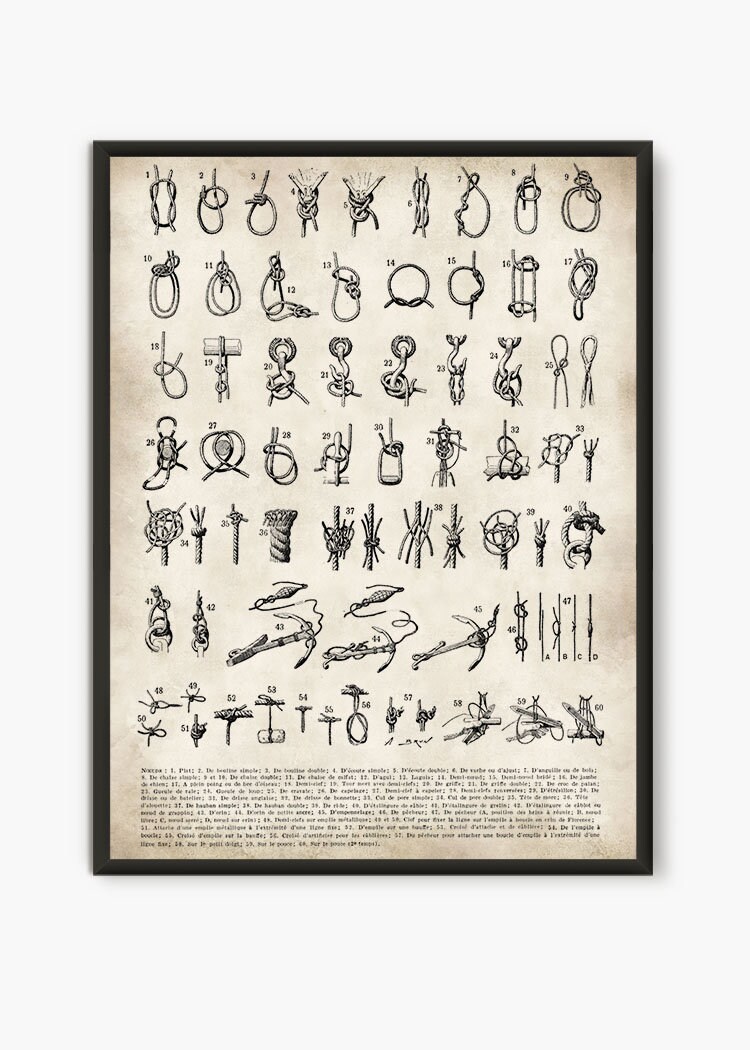 1 2 3 4 5 6 7 8 9
10 11 12 13 14 15 16 17
18 19 20 21 22 23 24 25
26 27 28 29 30 31 32 33
34 35 36 37 38 39 40
41 42 43 44 45 46 47
A B C D
48 49 50 51 52 53 54 55 56 57 58 59 60
NŒUDS : 1. Plat; 2. De bouline simple; 3. De bouline double; 4. D'écoute simple; 5. D'écoute double; 6. De vache ou d'ajust; 7. D'anguille ou de bois;
8. De chaise simple; 9 et 10. De chaise double; 11. De chaise de calfat; 12. D'agui; 13. Laguis; 14. Demi-nœud; 15. Demi-nœud bridé; 16. De jambe
de chien; 17. A plein poing ou de bec d'oiseau; 18. Demi-clef; 19. Tour mort avec demi-clefs; 20. De griffe; 21. De griffe double; 22. De croc de palan;
23. Gueule de raie; 24. Gueule de loup; 25. De cravate; 26. De capelage; 27. Demi-clef à capeler; 28. Demi-clefs renversées; 29. D'étrésillon; 30. De
drisse ou de batelier; 31. De drisse anglaise; 32. De drisse de bonnette; 33. Cul de porc simple; 34. Cul de porc double; 35. Tête de more; 36. Tête
d'alouette; 37. De hauban simple; 38. De hauban double; 39. De ride; 40. D'étalingure de câble; 41. D'étalingure de grelin; 42. D'étalingure de câblot ou
nœud de grappin; 43. D'orin; 44. D'orin de petite ancre; 45. D'empennelage; 46. De pêcheur; 47. De pêcheur (A, position des brins à réunir; B, nœud
libre; C, nœud serré; D, nœud sur crin); 48. Demi-clefs sur empile métallique; 49 et 50. Clef pour fixer la ligne sur l'empile à boucle en crin de Florence;
51. Attache d'une empile métallique à l'extrémité d'une ligne fixe; 52. D'empile sur une bauffe; 53. Croisé d'attache et de câblière; 54. De l'empile à
boucle; 55. Croisé d'empile sur la bauffe; 56. Croisé d'artificier pour les câblières; 57. Du pêcheur pour attacher une boucle d'empile à l'extrémité d'une
ligne fixe; 58. Sur le petit doigt; 59. Sur le pouce; 60. Sur le pouce (2e temps).